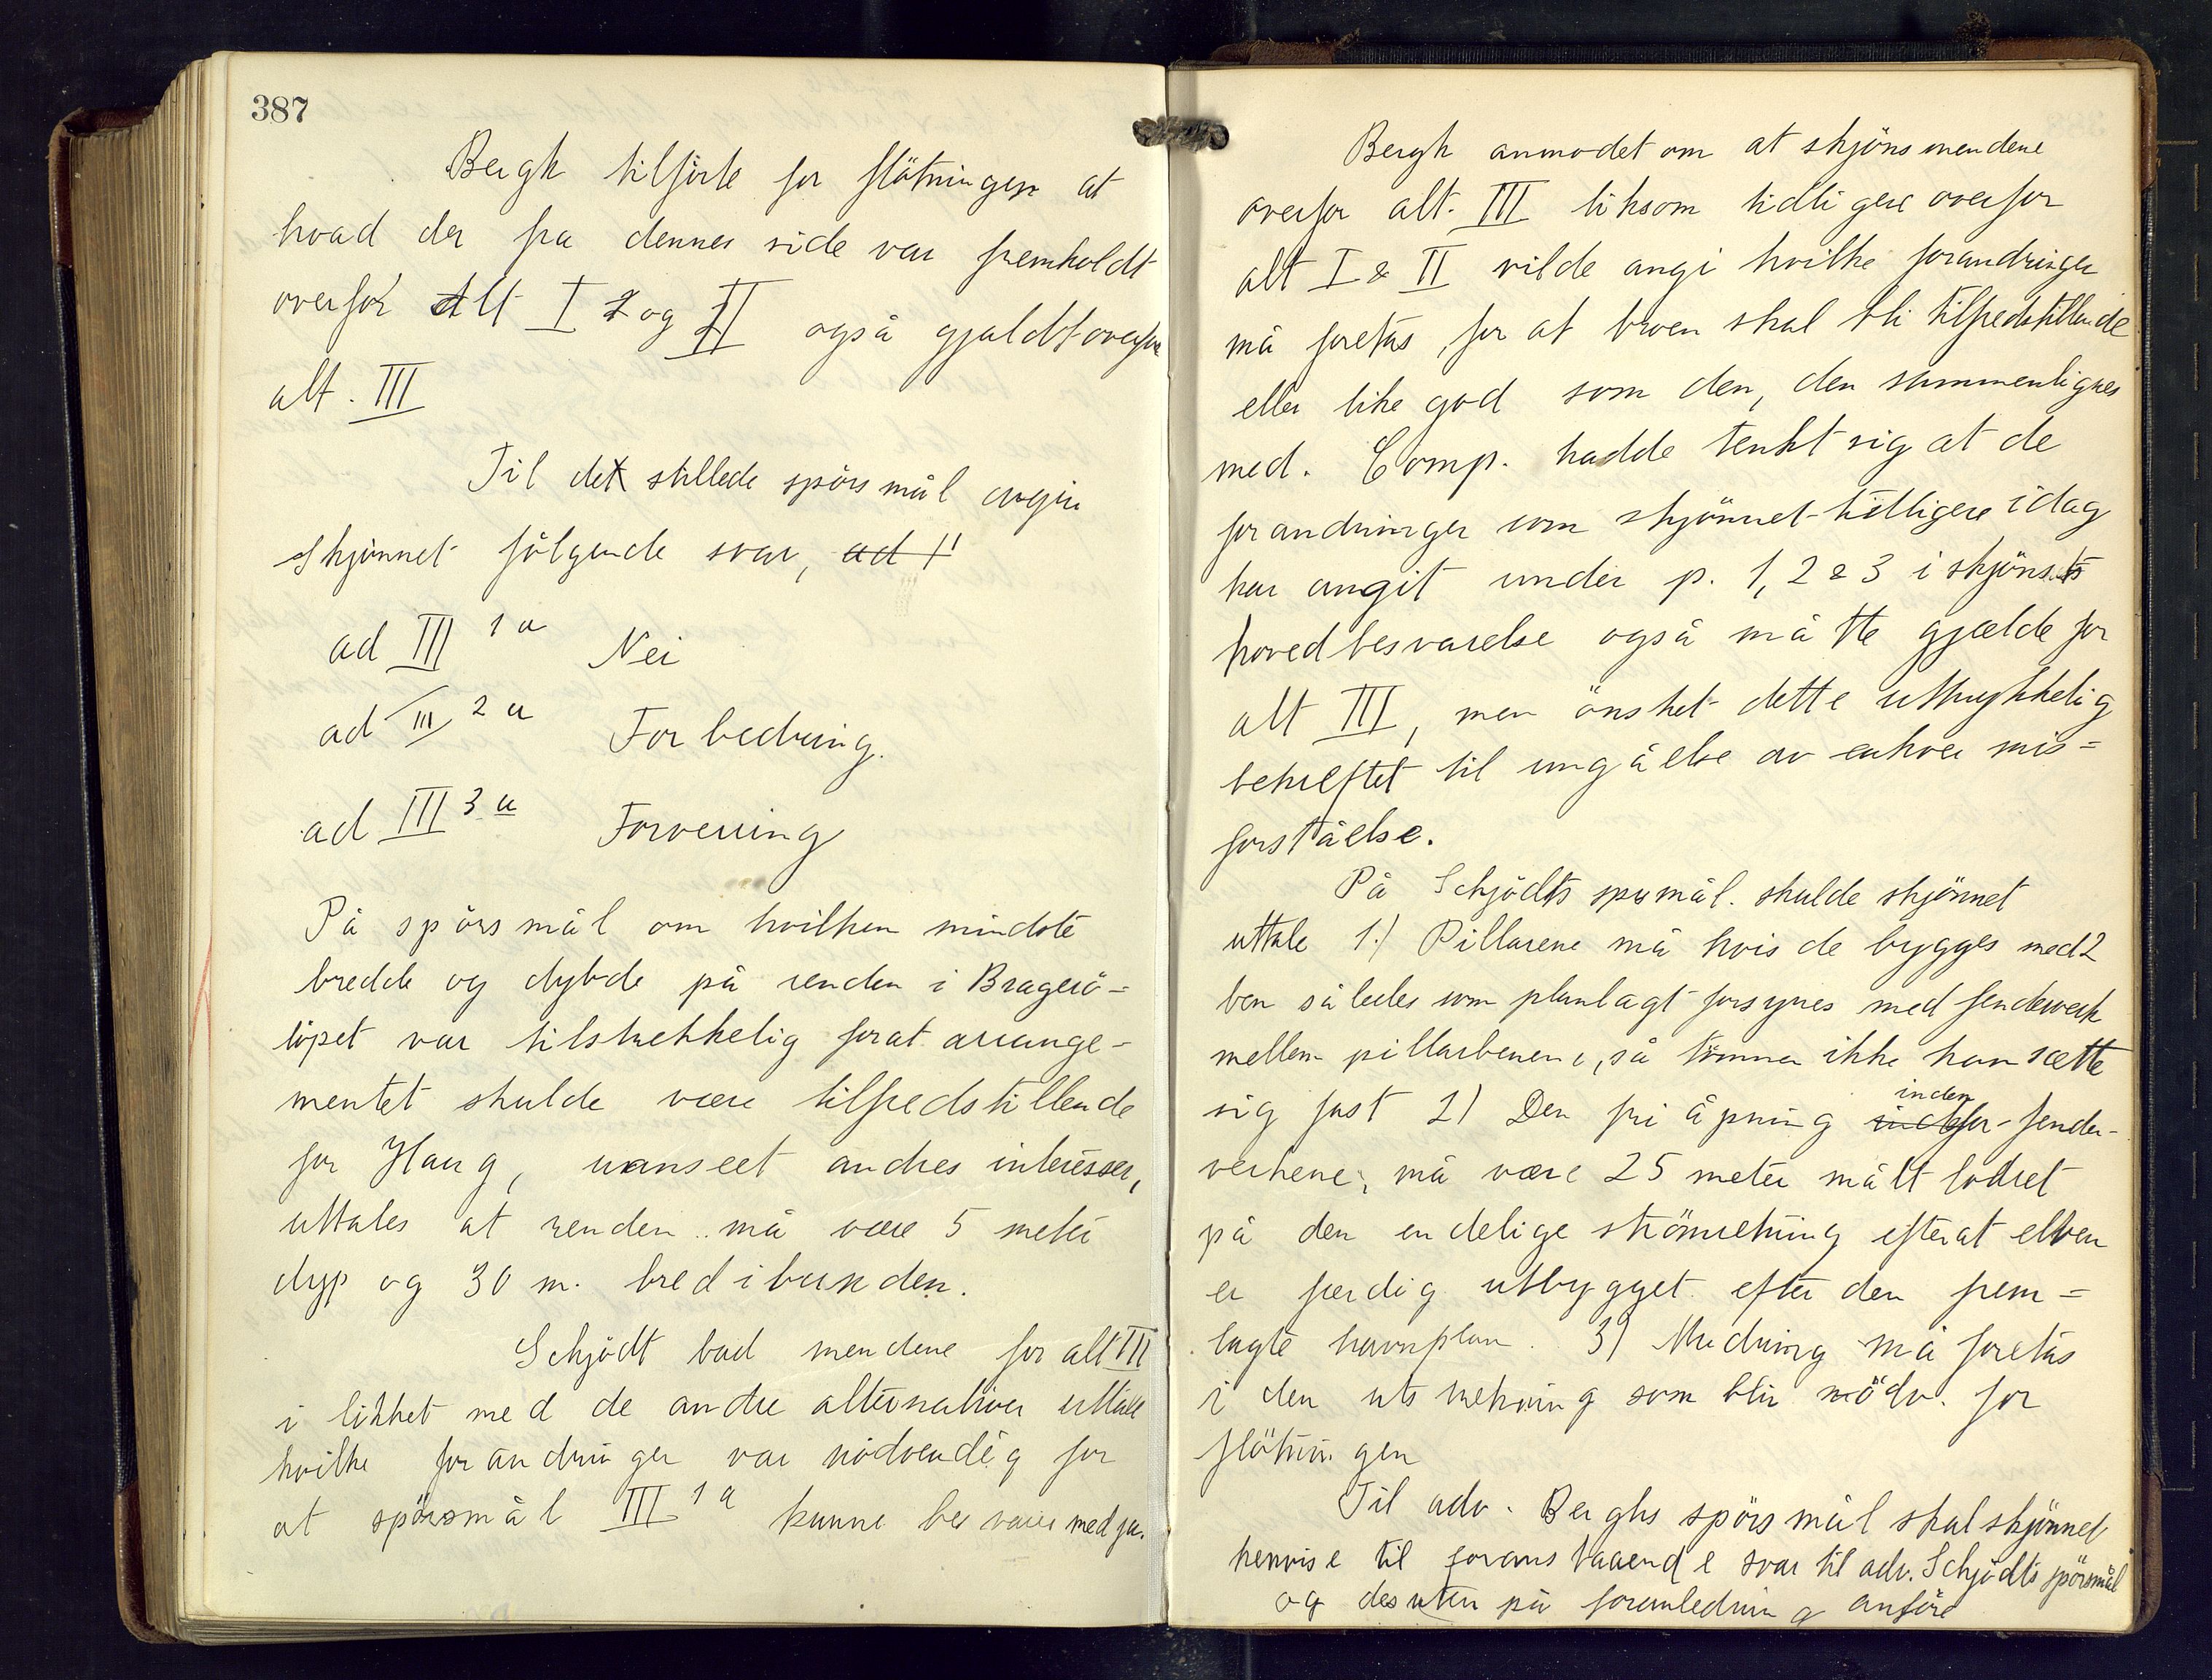 387
Bergh tilförte for flötningen at
hvad der fra dennes side var fremholdt
overfor Alt I & og II også gjaldt overfor
alt. III
Til det stillede spörsmål avgir
Skjönnet fölgende svar, ad 1
ad III 1 a Nei
ad III 2 a Forbedring.
ad III 3 a Forverring
På spörsmål om hvilken mindste
bredde og dybde på renden i Bragerö-
löpet var tilstrekkelig forat arrange-
mentet skulde være tilfredstillende
for Haug, uanseet andres interesser,
uttales at renden må være 5 meter
dyp og 30 m. bred i bunden.
Schjödt bad mendene for alt III
i likhet med de andre alternativer uttale
hvilke forandringer var nödvendig for
at spörsmål III 1 a kunne besvares med ja.
Bergh anmodet om at skjönsmendene
overfor alt. III liksom tidligere overfor
alt I & II vilde angi hvilke forandringer
må foretas, for at broen skal bli tilfredstillende
eller like god som den, den sammenlignes
med. Comp. hadde tenkt sig at de
forandringer som skjönnet tidligere idag
har angit under p. 1, 2 & 3 i skjönnets
hovedbesvarelse også måtte gjælde for
alt III, men önsket dette uttrykkelig
bekreftet til ungåelse av enhver mis=
forståelse.
På Schjödts spsmål. skulde skjönnet
uttale 1.) Pillarene må hvis de bygges med 2
ben således som planlagt forsynes med fenderverk
mellem pillarbenene, så tömmer ikke kan sætte
sig fast 2) Den fri åpning inden
for fender-
verkene, må være 25 meter målt lodret
på den endelige strömretning efterat elven
er ferdig utbygget efter den frem=
lagte havnplan. 3) Mudring må foretas
i den utstrekning som blir nödv. for
flötningen
Til adv. Berghs spörsmål skal skjönnet
henvise til foranstaaende svar til adv. Schjödts spörsmål
og desuten på foranledning anföre